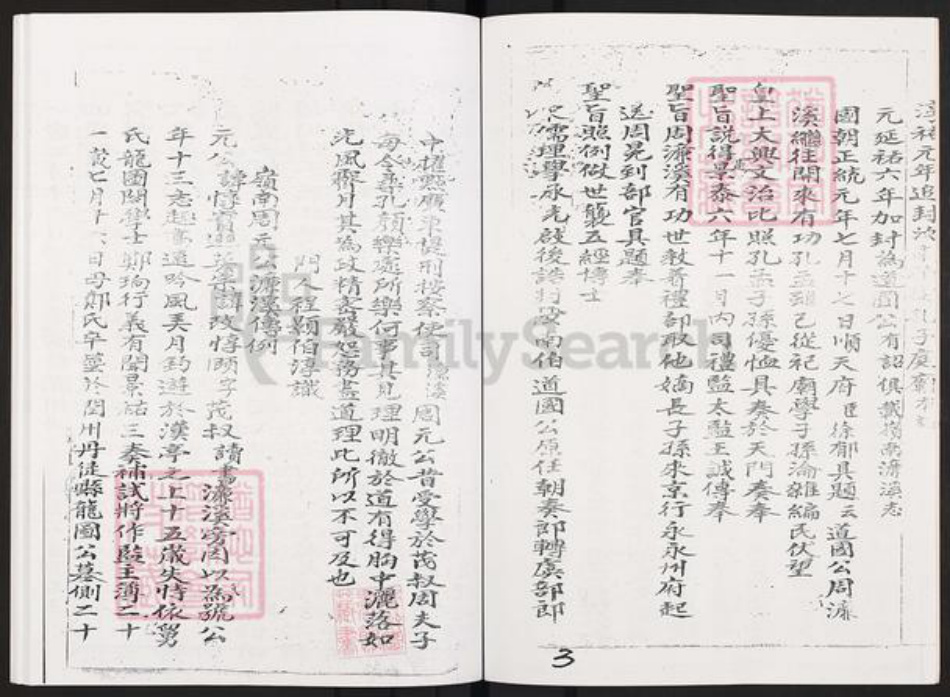 元延祐六年加封為道國公有詔俱載嶺南濂溪志
國朝正統元年七月十七日順天府臣徐郁具題云道國公周濂
溪繼往開來有功孔孟雖已從祀廟學子孫淪雜編民伏望
皇上大興文治比照孔孟子孫優恤具奏於天門奏奉
聖旨說得是景泰六年十一月內司禮監太監王誠傳奉
聖旨周濂溪有功世教著禮部取他嫡長子孫來京行永永州府起
送周冕到部官具題奉
聖旨照例做世襲五經博士
儒理學永光啟後誥封汝南伯道國公原任朝奏郎轉虞部郎
中擢 廣東提刑按察使司濂溪周元公昔受學於茂叔周夫子
每令尋孔顏樂處所樂何事其見理明徹於道有得胸中灑落如
光風霽月其為政精密嚴恕務盡道理此所以不可及也
門人程顥伯淳識
嶺南周元公濂溪傳例
元公諱惇實 諱改惇頤字茂叔讀書濂溪旁因以為號公
年十三志趣高遠吟風弄月釣遊於溪亭之上十五歲失恃依舅
氏龍圖閣學士鄭珦行義有聞景祐三奏補試將作監主簿二十
一歲七月十六日母鄭氏卒葬於閏州丹徒縣龍圖公墓側二十
3
FamilySearch